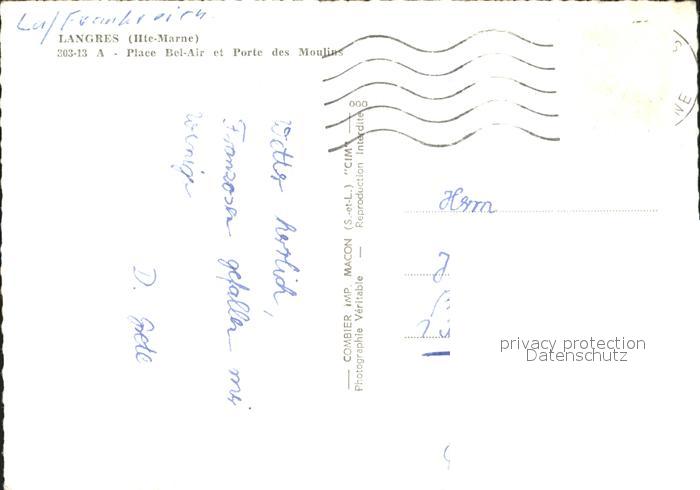 Lu/Frankreich.
LANGRES (Hte-Marne)
303-13 A - Place Bel-Air et Porte des Moulins
Wetter herrlich,
Franzosen gefallen mir
weniger
D. Grete
— COMBIER IMP. MACON (S.-et-L.) "CIM" —
Photographie Véritable — Reproduction Interdite
000
Herrn
privacy protection
Datenschutz